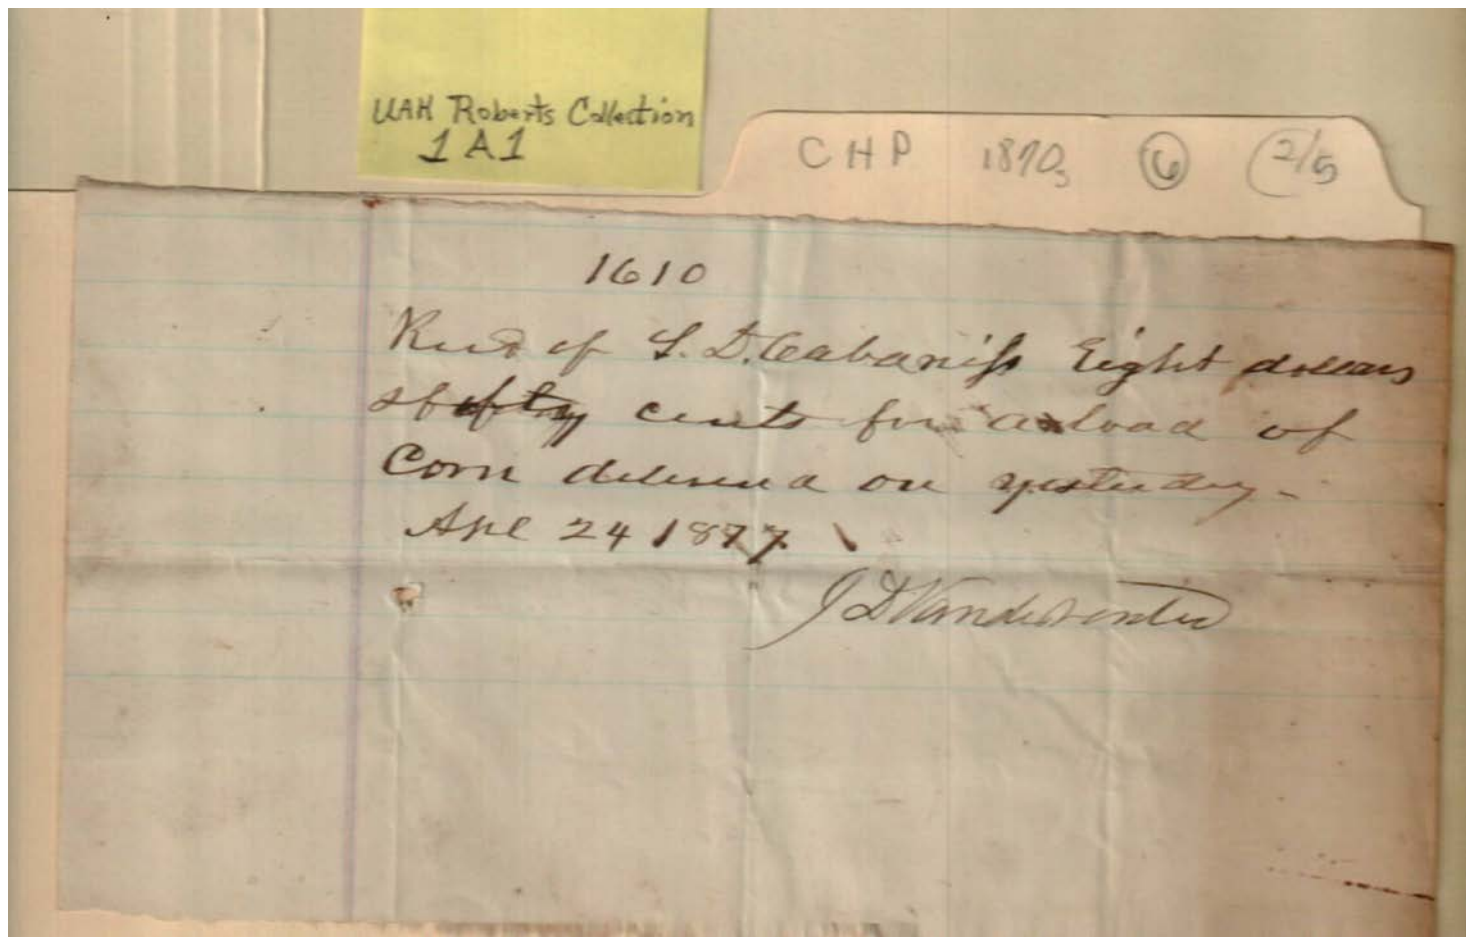 UAH Roberts Collection
1A1
CHP 1870s 6 2/5
1610
Recd of S. D. Cabaniss Eight dollars
& fifty cents for a load of
Corn delivered on yesterday -
Apl 24 1877
J D Vandeventer